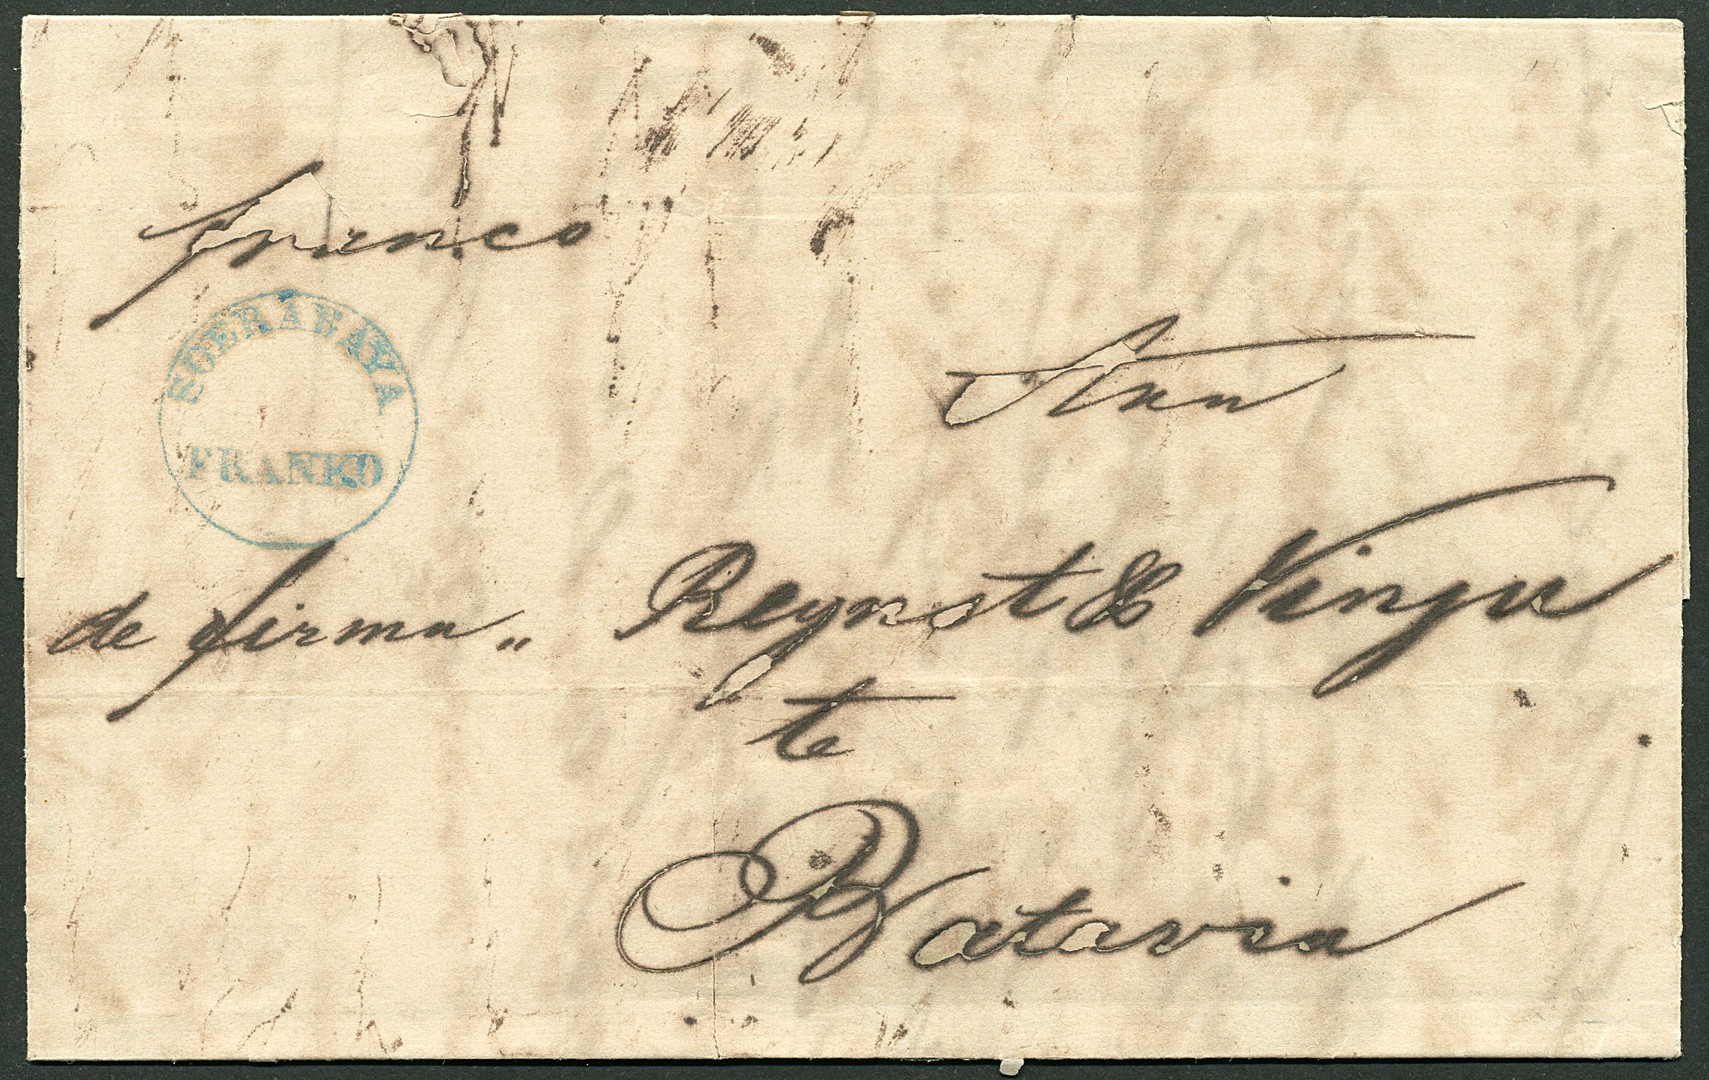 franco
SOERABAYA
FRANKO
Aan
de firma „ Reynst & Vinju
te
Batavia